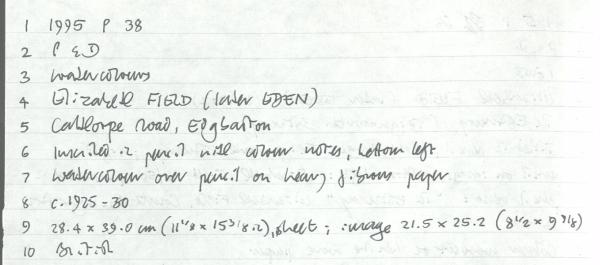 1 1995 P 38
2 P & D
3 watercolours
4 Elizabeth FIELD (later EDEN)
5 Calthorpe Road, Edgbaston
6 Inscribed in pencil with colour notes, bottom left
7 Watercolour over pencil on heavy fibrous paper
8 c. 1925 - 30
9 28.4 x 39.0 cm (11 1/8 x 15 3/8 in), sheet ; image 21.5 x 25.2 (8 1/2 x 9 7/8)
10 British